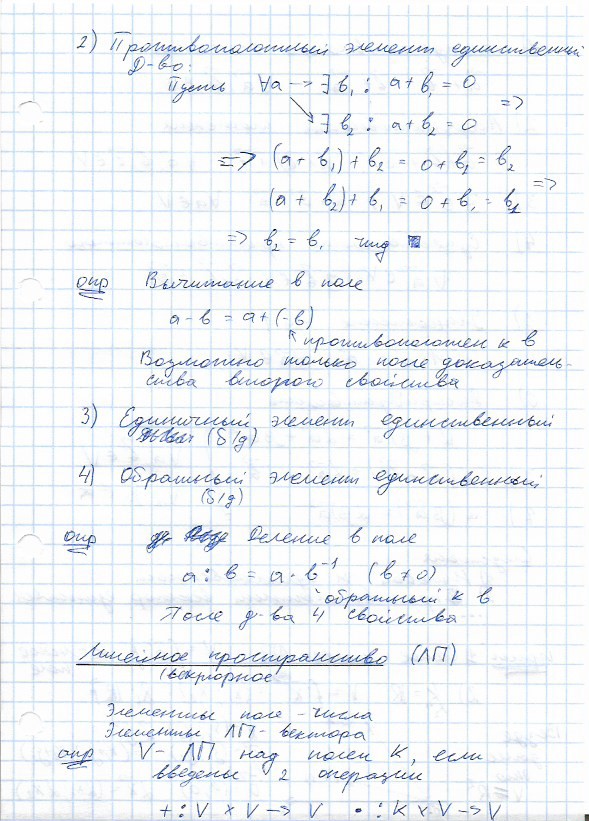 2) Противоположный элемент единственный
Д-во:
Пусть ∀a → ∃ b₁ : a + b₁ = 0
=>
∃ b₂ : a + b₂ = 0
=> (a + b₁) + b₂ = 0 + b₂ = b₂
=>
(a + b₂) + b₁ = 0 + b₁ = b₁
=> b₂ = b₁ чтд
опр Вычитание в поле
a - b = a + (-b)
противоположен к b
Возможно только после доказатель-
ства второго свойства
3) Единичный элемент единственный
(б/д)
4) Обратный элемент единственный
(б/д)
опр Деление в поле
a : b = a · b⁻¹ (b ≠ 0)
обратный к b
После д-ва 4 свойства
Линейное пространство (ЛП)
(векторное
Элементы поле - числа
Элементы ЛП - вектора
опр V - ЛП над полем K, если
введены 2 операции
+ : V × V → V • : K × V → V